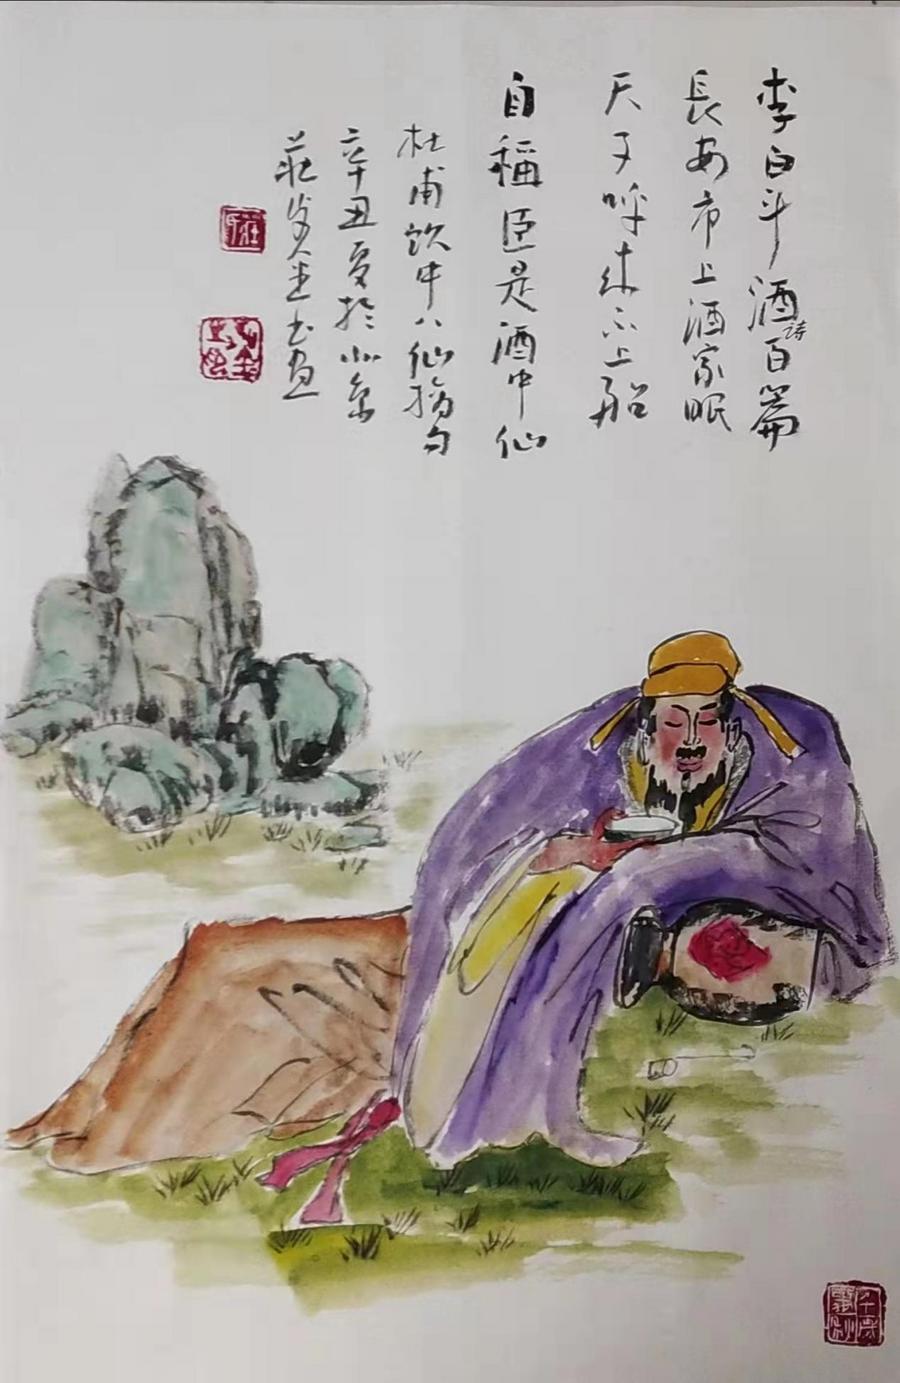 李白斗酒詩百篇
長安市上酒家眠
天子呼来不上船
自稱臣是酒中仙
杜甫飲中八仙摘句
辛丑夏於北京
莊炎金書画